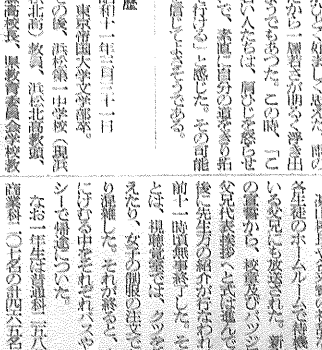 好ましく思えた。時の
だから一層若さが明るく浮き出
ようでもあった。この時、「こ
人たちは、肩ひじを怒らせ
で、素直に自分の道を切り拓
を付ける」と感じた。その可能
信じてよさそうである。
歴
昭和十一年三月三十一日
東京帝国大学文学部卒。
の後、浜松第一中学校（現浜
松北高）教員、浜松北高教頭、
高校長、県教育委員会高校教
各生徒のホームルームで待機
いる父兄にも放送された。新
の宣誓から、校章及びバッジ
父兄代表挨拶へと式は進んで
後に先生方の紹介が行なわれ
前十一時頃無事終了した。そ
とは、視聴覚室では、クツを
えたり、女子の制服の注文で
り混雑した。それが終わると、
にけむる中をそれぞれバスや
シーで帰途についた。
なお一年生は普通科三一八
商業科一〇七名の計四二五名